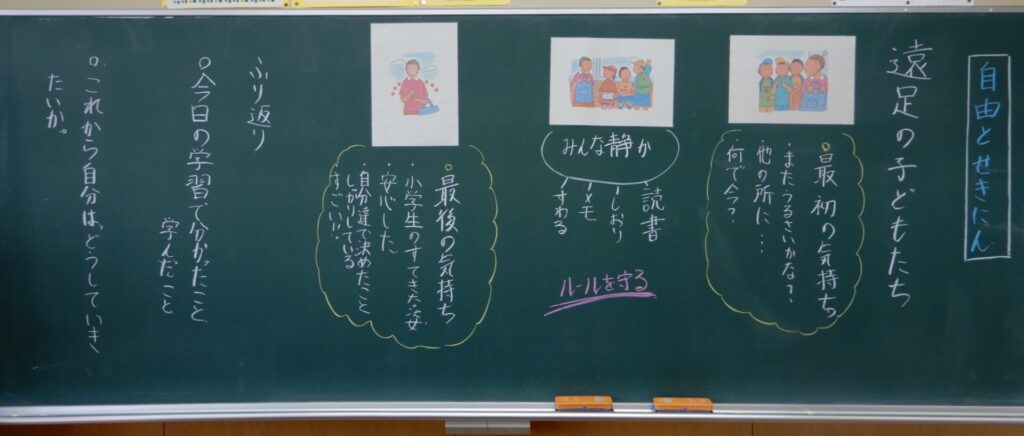 自由とせきにん
遠足の子どもたち
○最初の気持ち
・またうるさいかな？
・他の所に・・・
何で今？
みんな静か
読書
しおり
メモ
すわる
ルールを守る
○最後の気持ち
・小学生のすてきな姿
・安心した
・自分達で決めたこと
しっかりしている
すごい!!
ふり返り
○今日の学習で分かったこと
学んだこと
○これから自分は、どうしていき
たいか。